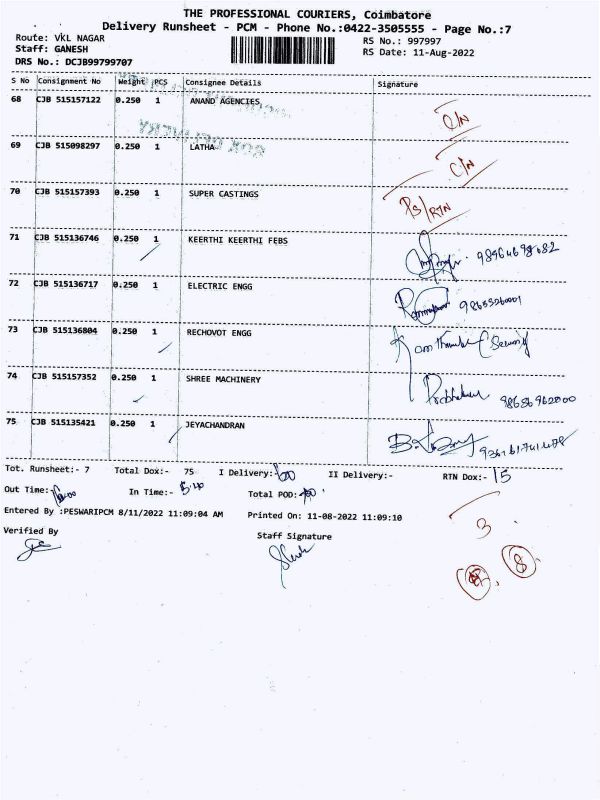 THE PROFESSIONAL COURIERS, Coimbatore
Delivery Runsheet - PCM - Phone No.:0422-3505555 - Page No.:7
Route: VKL NAGAR RS No.: 997997
Staff: GANESH RS Date: 11-Aug-2022
DRS No.: DCJB99799707
S No Consignment No Weight PCS Consignee Details Signature
68 CJB 515157122 0.250 1 ANAND AGENCIES
69 CJB 515098297 0.250 1 LATHA C/N
70 CJB 515157393 0.250 1 SUPER CASTINGS PS/RTN
71 CJB 515136746 0.250 1 KEERTHI KEERTHI FEBS
72 CJB 515136717 0.250 1 ELECTRIC ENGG
73 CJB 515136804 0.250 1 RECHOVOT ENGG
74 CJB 515157352 0.250 1 SHREE MACHINERY Prabhakaran
75 CJB 515135421 0.250 1 JEYACHANDRAN
Tot. Runsheet:- 7 Total Dox:- 75 I Delivery:- 60 II Delivery:- RTN Dox:- 15
Out Time:- In Time:- 5.40 Total POD:-
Entered By :PESWARIPCM 8/11/2022 11:09:04 AM Printed On: 11-08-2022 11:09:10
Verified By Staff Signature
3
8